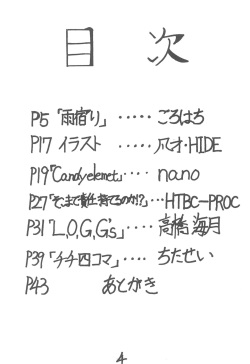 目次
P5「雨宿り」・・・・・ごろはち
P17 イラスト ・・・・・爪才・HIDE
P19「Candy element」・・・・nano
P27 ・・・HTBC-PROC
P31「L.O.G.G's」・・・・高橋海月
P39「チチ四コマ」・・・・ちたせい
P43 あとがき
4